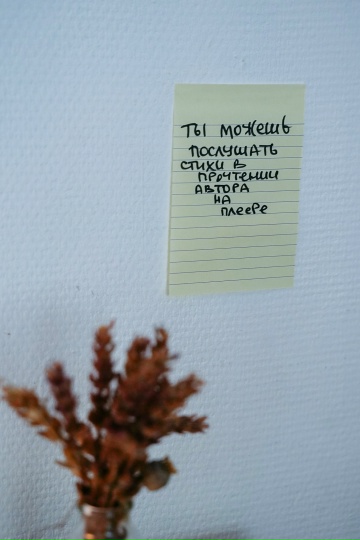 ты можешь
послушать
стихи в
прочтении
автора
на
плеере